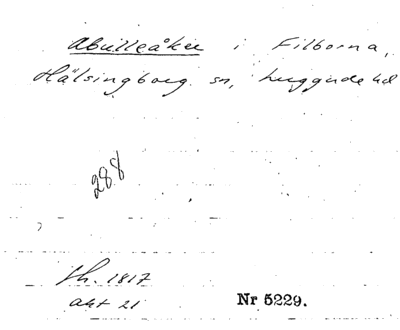 Abulleåker i Filborna,
Hälsingborg sn, Luggude hd
288
Sh. 1817
akt 21
Nr 5229.